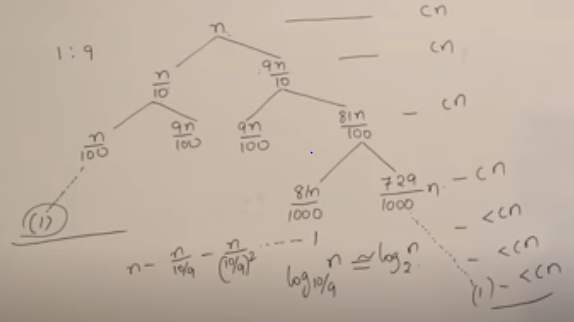 n cn
1 : 9
n/10 9n/10 cn
n/100 9n/100 9n/100 81n/100 - cn
81n/1000 729/1000 n - cn
- <cn
- <cn
(1) (1) - <cn
n - n/(10/9) - n/(10/9)² ------ 1
log₁₀/₉ n ≅ log₂ n